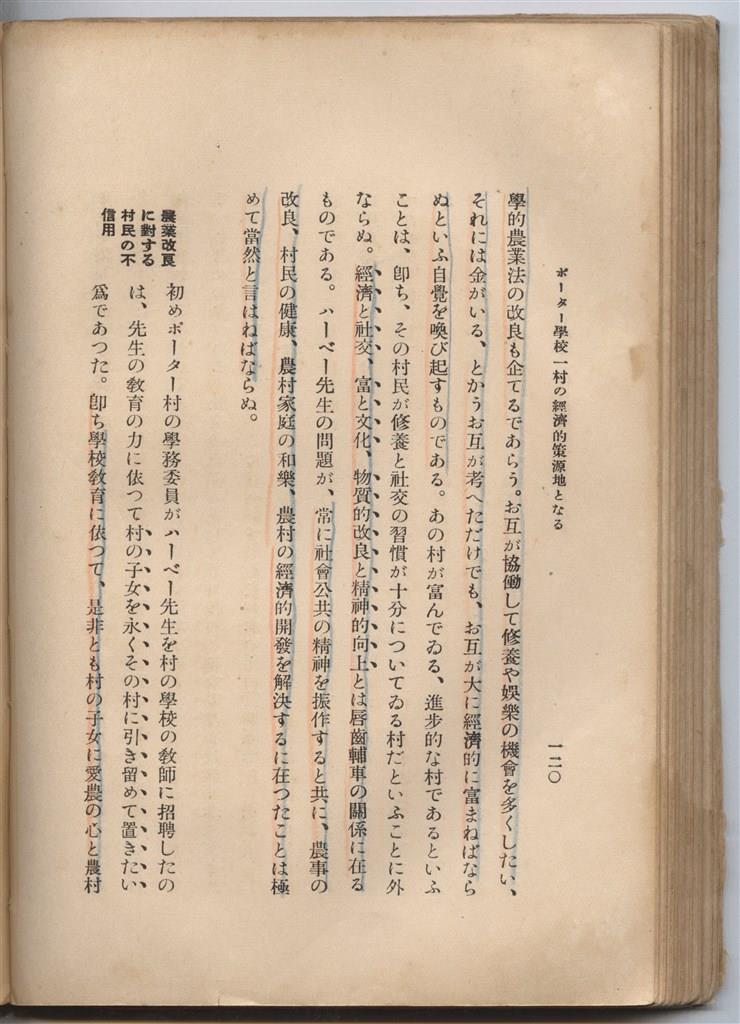 ポーター學校一村の經濟的策源地となる
一二〇
學的農業法の改良も企てるであらう。お互が協働して修養や娛樂の機會を多くしたい、
それには金がいる、とかうお互が考へただけでも、お互が大に經濟的に富まねばなら
ぬといふ自覺を喚び起すものである。あの村が富んでゐる、進步的な村であるといふ
ことは、卽ち、その村民が修養と社交の習慣が十分についてゐる村だといふことに外
ならぬ。經濟と社交、富と文化、物質的改良と精神的向上とは唇齒輔車の關係に在る
ものである。ハーベー先生の問題が、常に社會公共の精神を振作すると共に、農事の
改良、村民の健康、農村家庭の和樂、農村の經濟的開發を解決するに在つたことは極
めて當然と言はねばならぬ。
農業改良
に對する
村民の不
信用
初めポーター村の學務委員がハーベー先生を村の學校の敎師に招聘したの
は、先生の敎育の力に依つて村の子女を永くその村に引き留めて置きたい
爲であつた。卽ち學校敎育に依つて、是非とも村の子女に愛農の心と農村